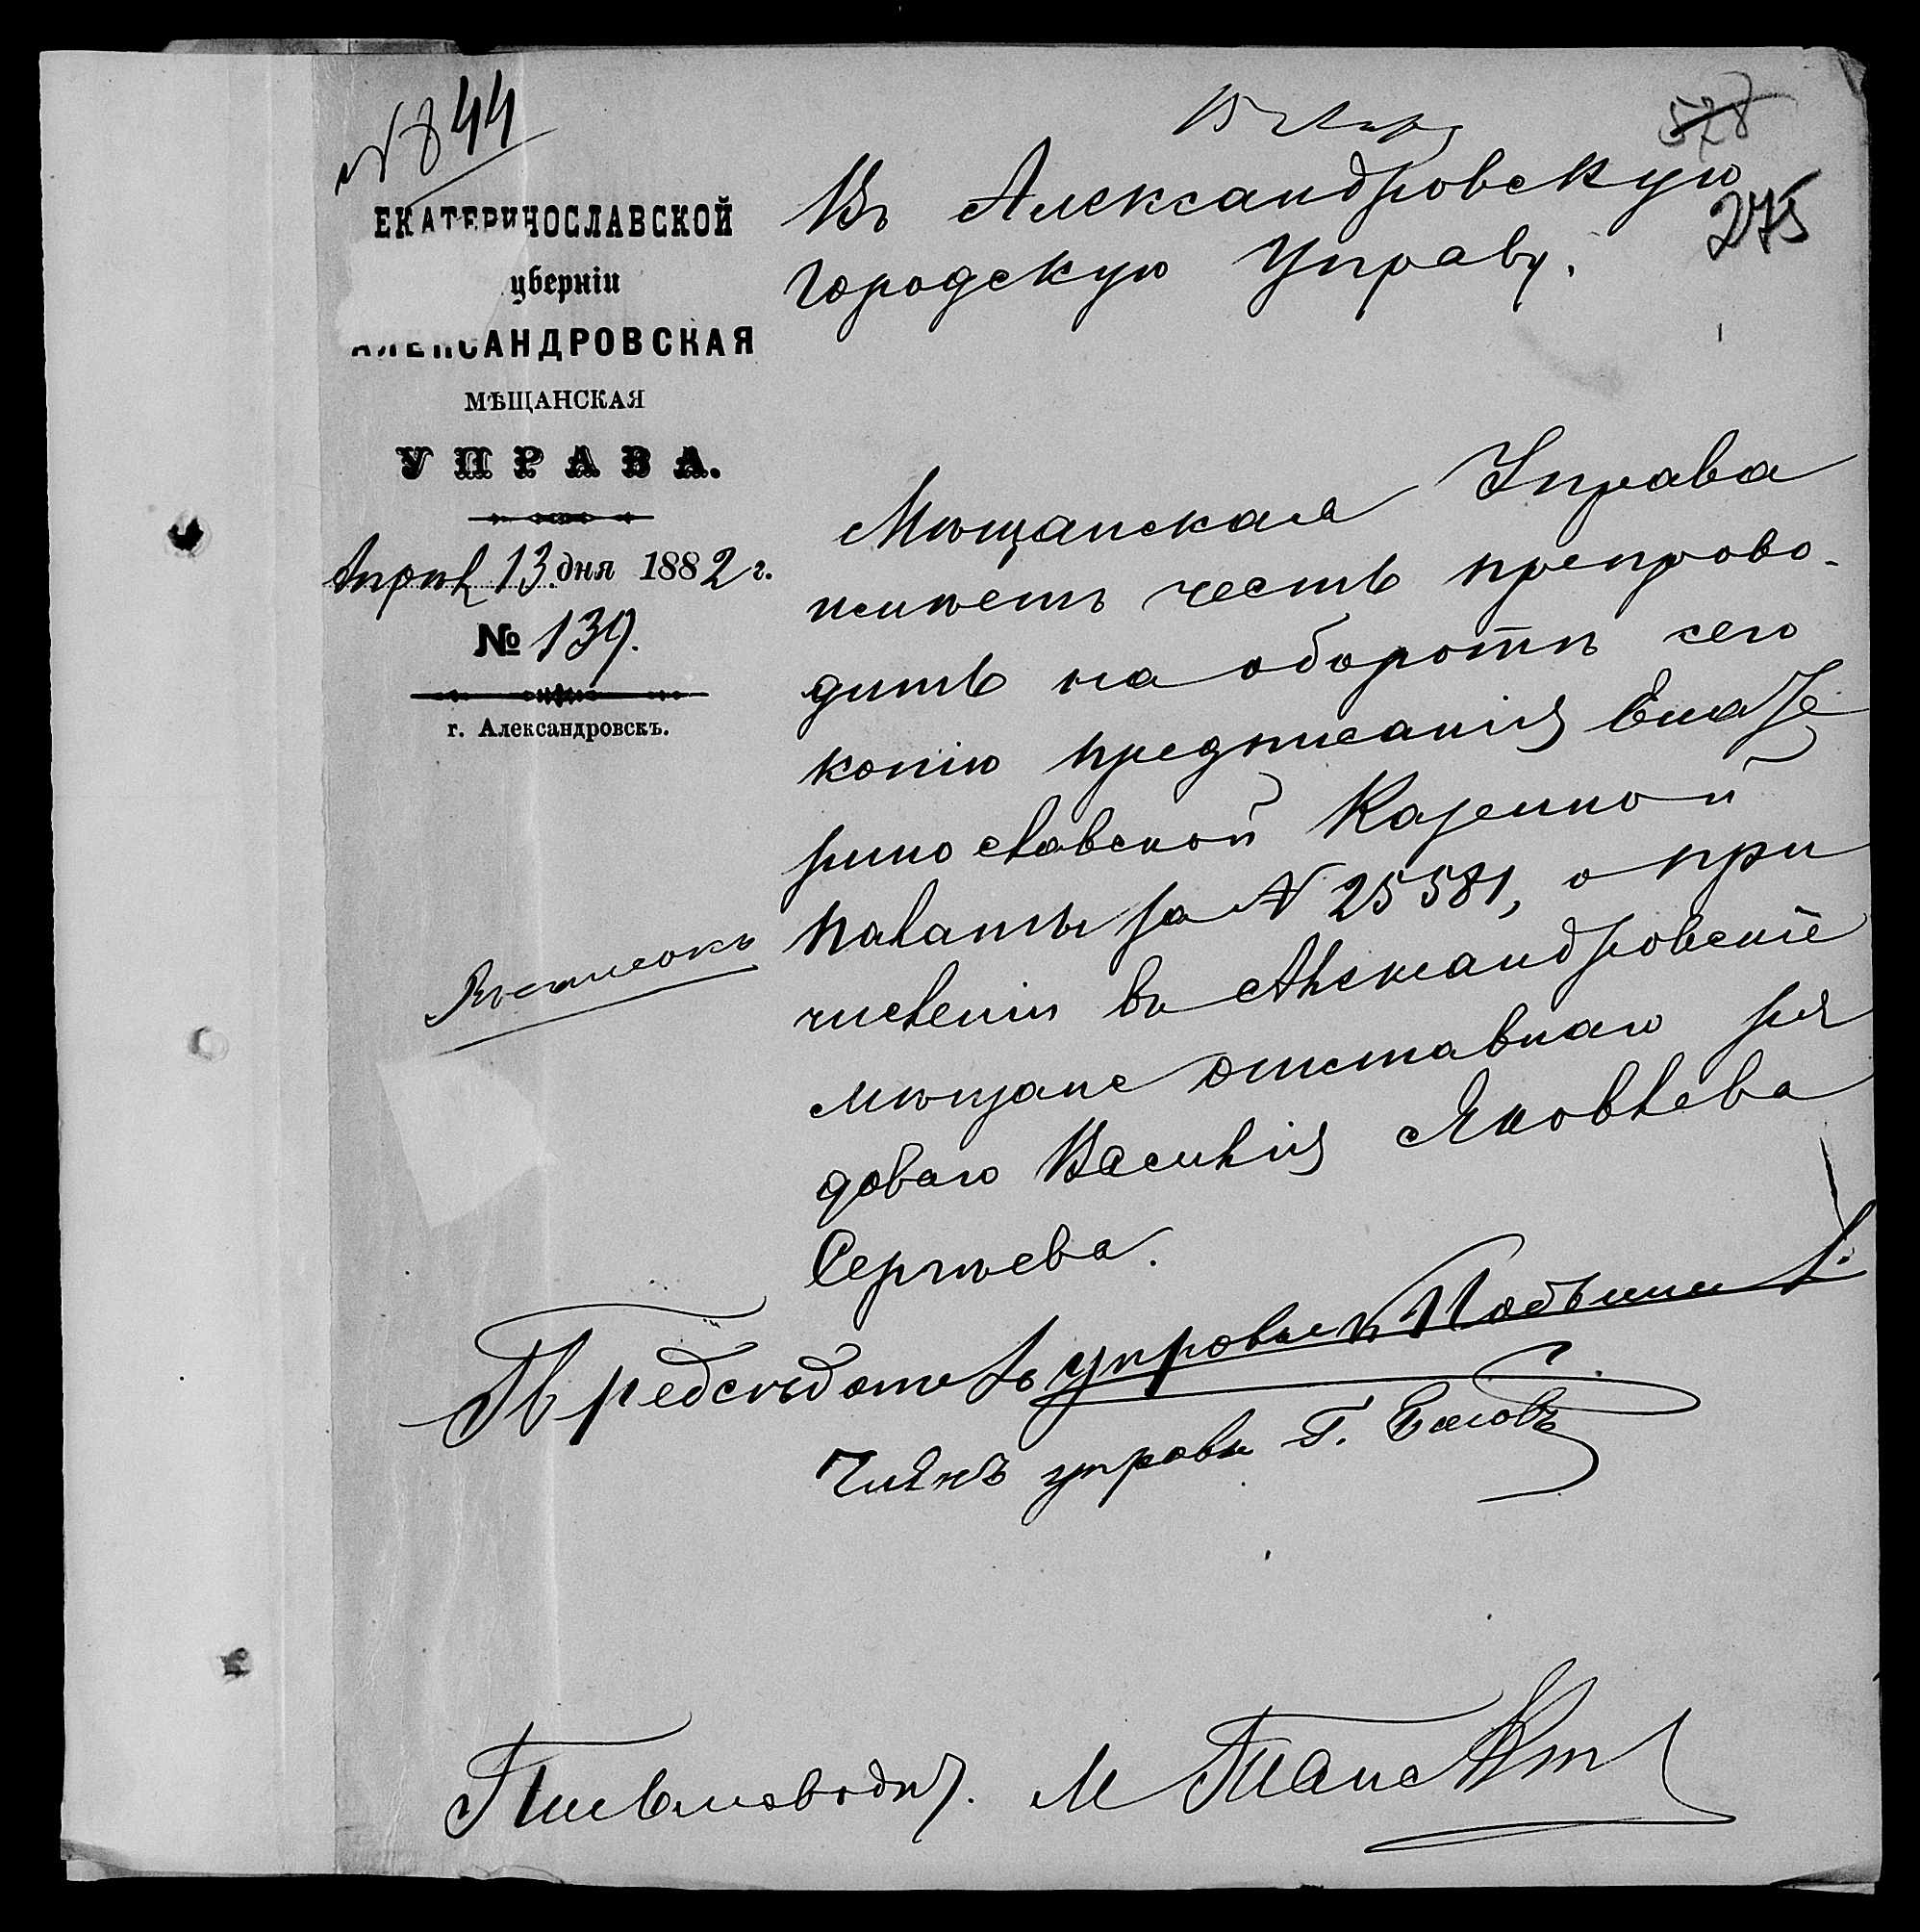 № 844
578
275
ЕКАТЕРИНОСЛАВСКОЙ
уберніи
АЛЕКСАНДРОВСКАЯ
МѢЩАНСКАЯ
УПРАВА.
Апрѣл 13 дня 1882 г.
№ 139.
г. Александровскъ.
Въ Александровскую
Городскую Управу.
Мѣщанская Управа
имѣетъ честь препрово-
дить на оборотѣ сего
копію предписанія Екате
ринославской Казенной
Палаты за № 25581, о при
численіи въ Александровскіе
мѣщане отставнаго ря
доваго Василія Яковлева
Сергѣева.
Предсѣдатель управы
Членъ управы Г.
Письмоводит. М